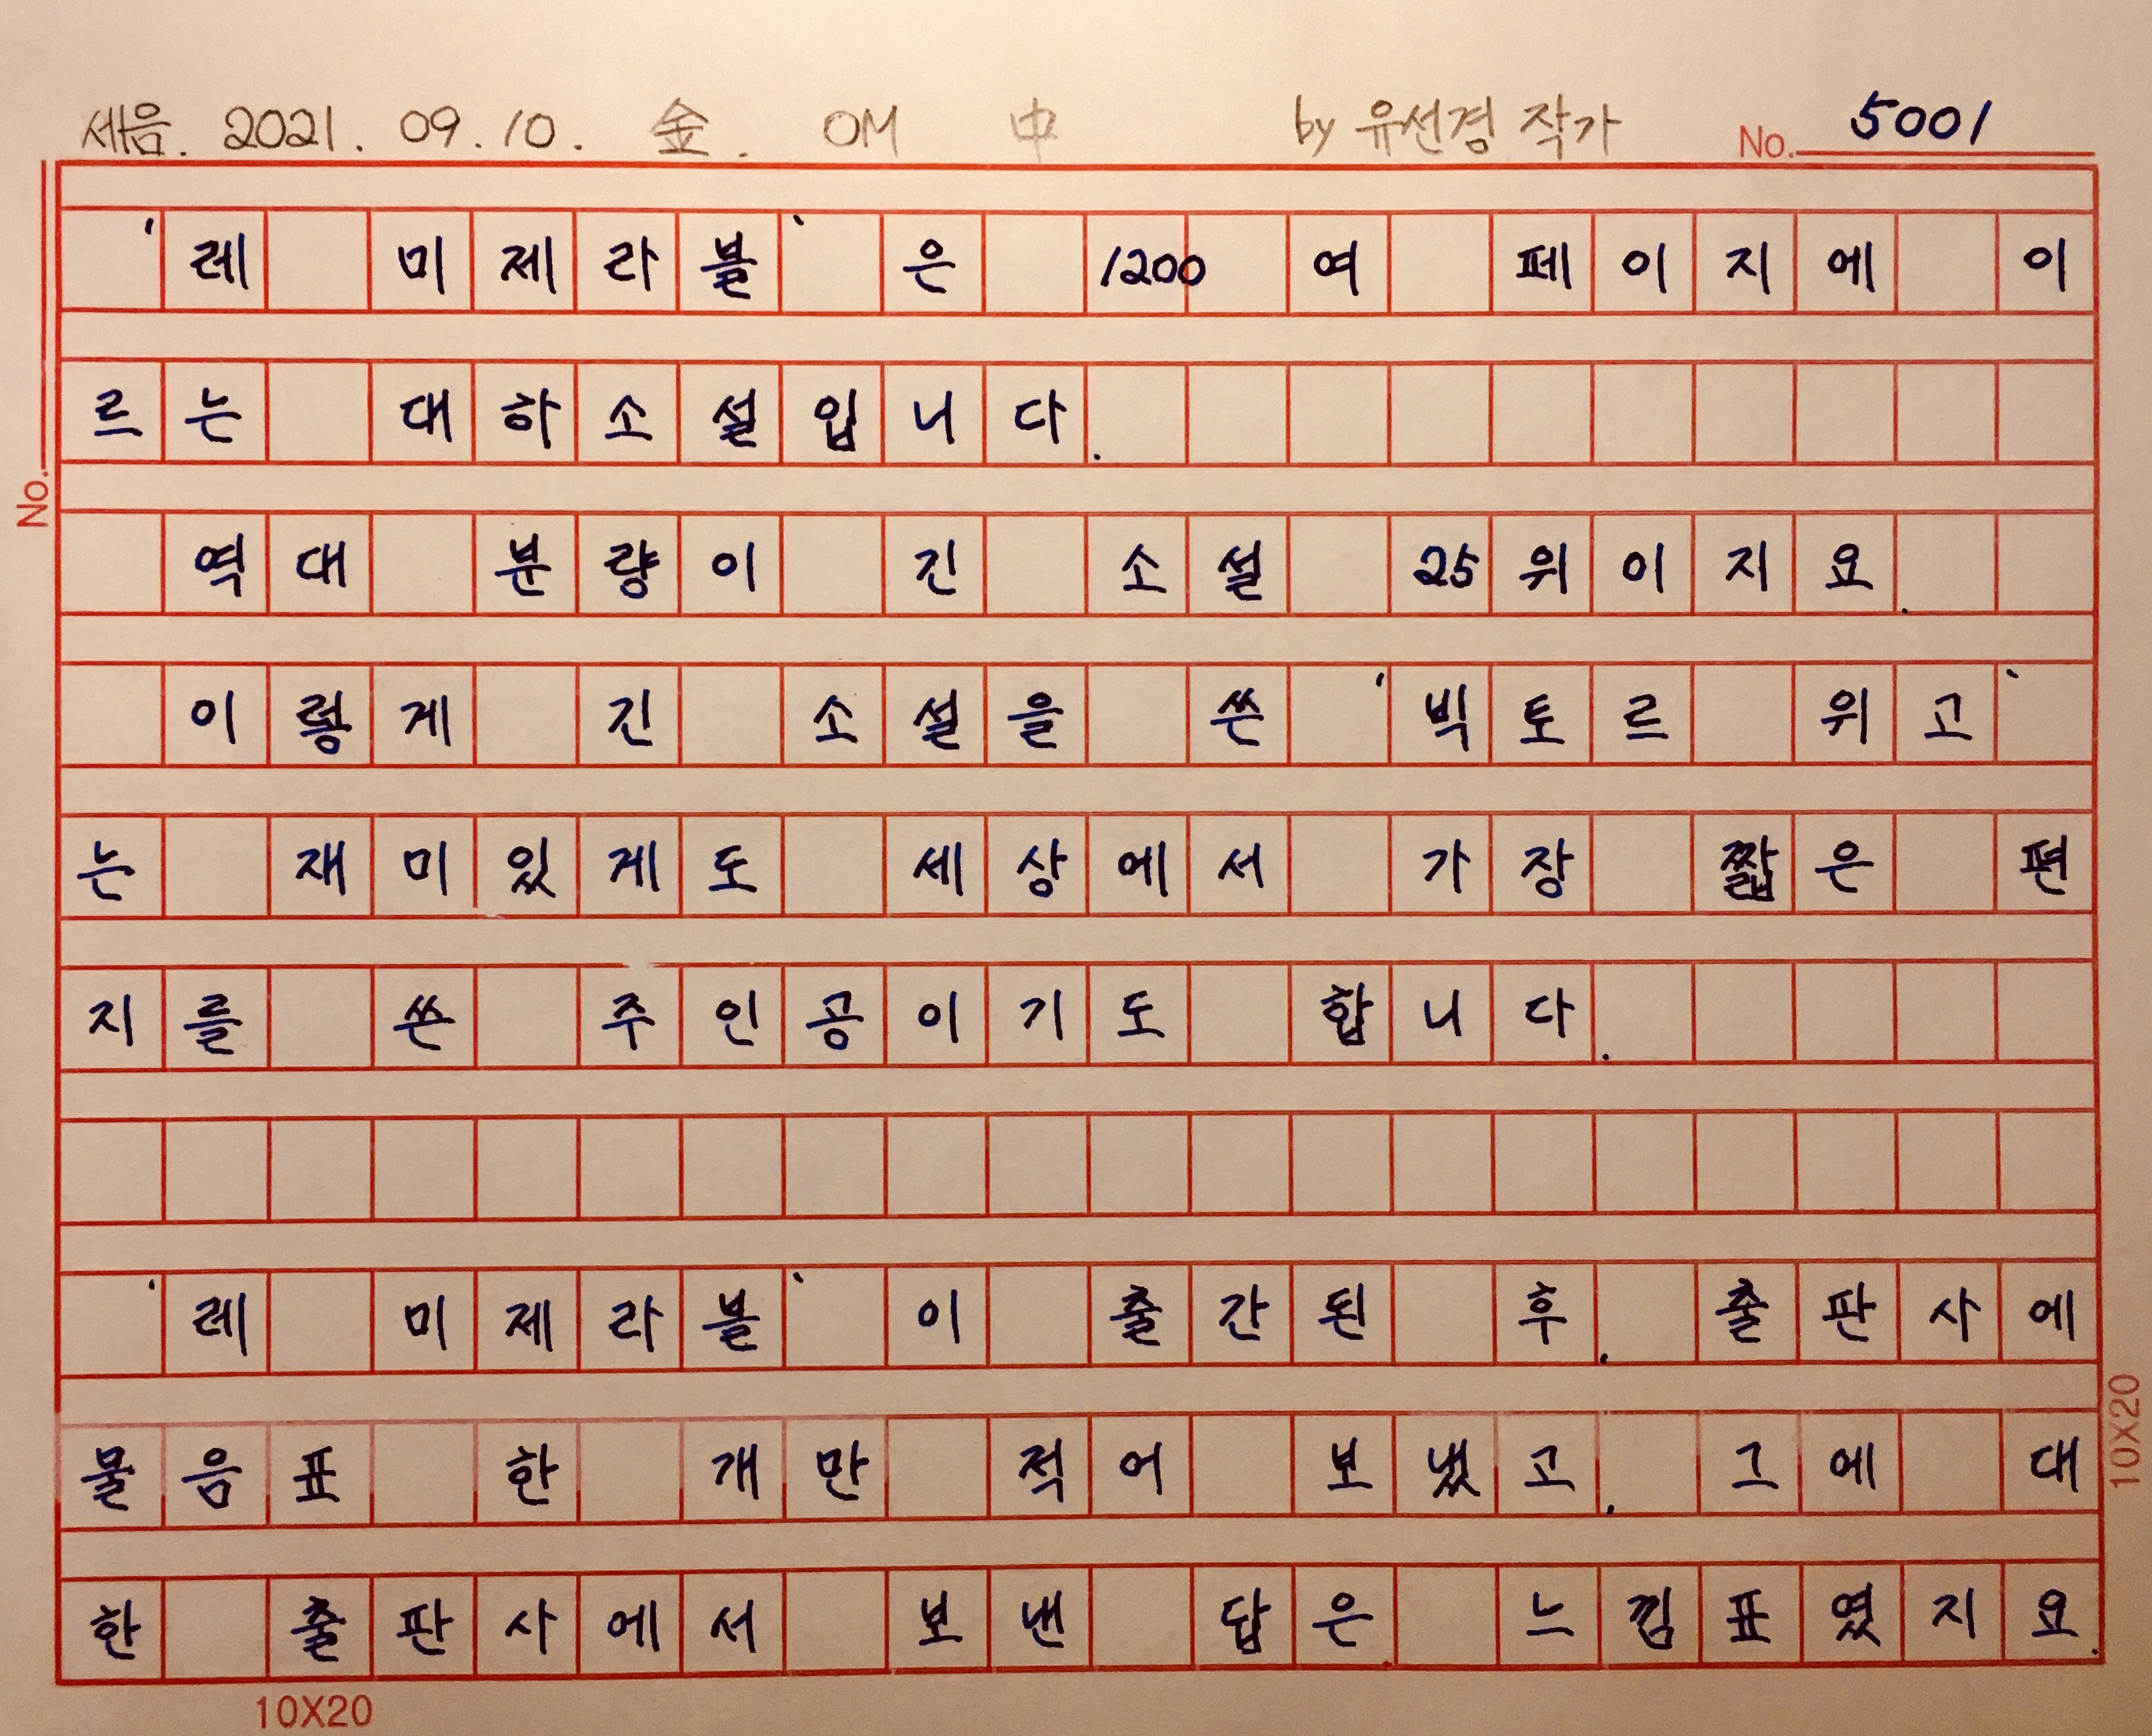 세음. 2021. 09. 10. 金. OM 中 by 유선경 작가 No. 5001
'레 미제라블'은 1200여 페이지에 이
르는 대하소설입니다.
역대 분량이 긴 소설 25위이지요.
이렇게 긴 소설을 쓴 '빅토르 위고'
는 재미있게도 세상에서 가장 짧은 편
지를 쓴 주인공이기도 합니다.
'레 미제라블'이 출간된 후, 출판사에
물음표 한 개만 적어 보냈고, 그에 대
한 출판사에서 보낸 답은 느낌표였지요.
No.
10X20
10X20